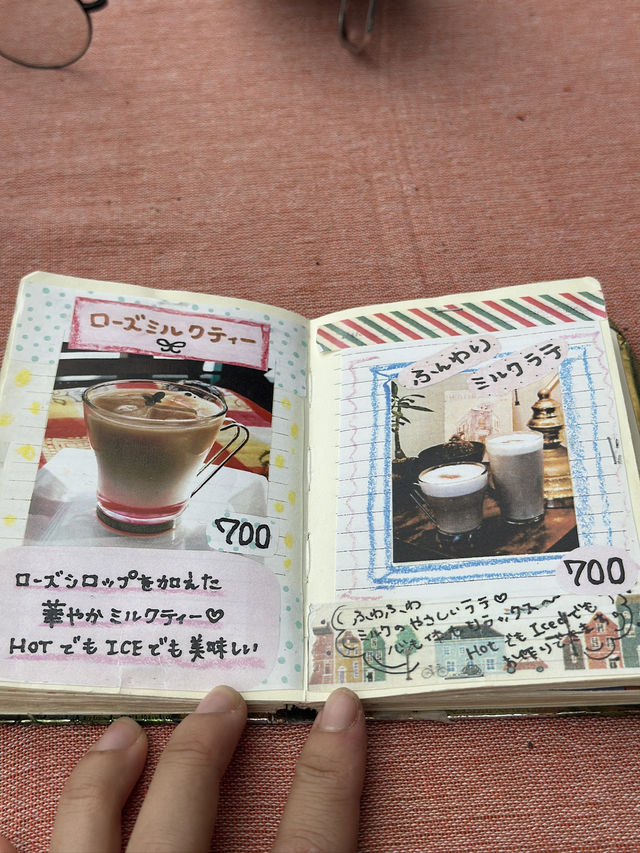 ローズミルクティー
700
ローズシロップを加えた
華やかミルクティー♡
HOT でも ICEでも美味しい
ふんわり
ミルクラテ
700
ふわふわ
ミルクのやさしいラテ♡
心も体もリラックス
Hot でも Iceでも